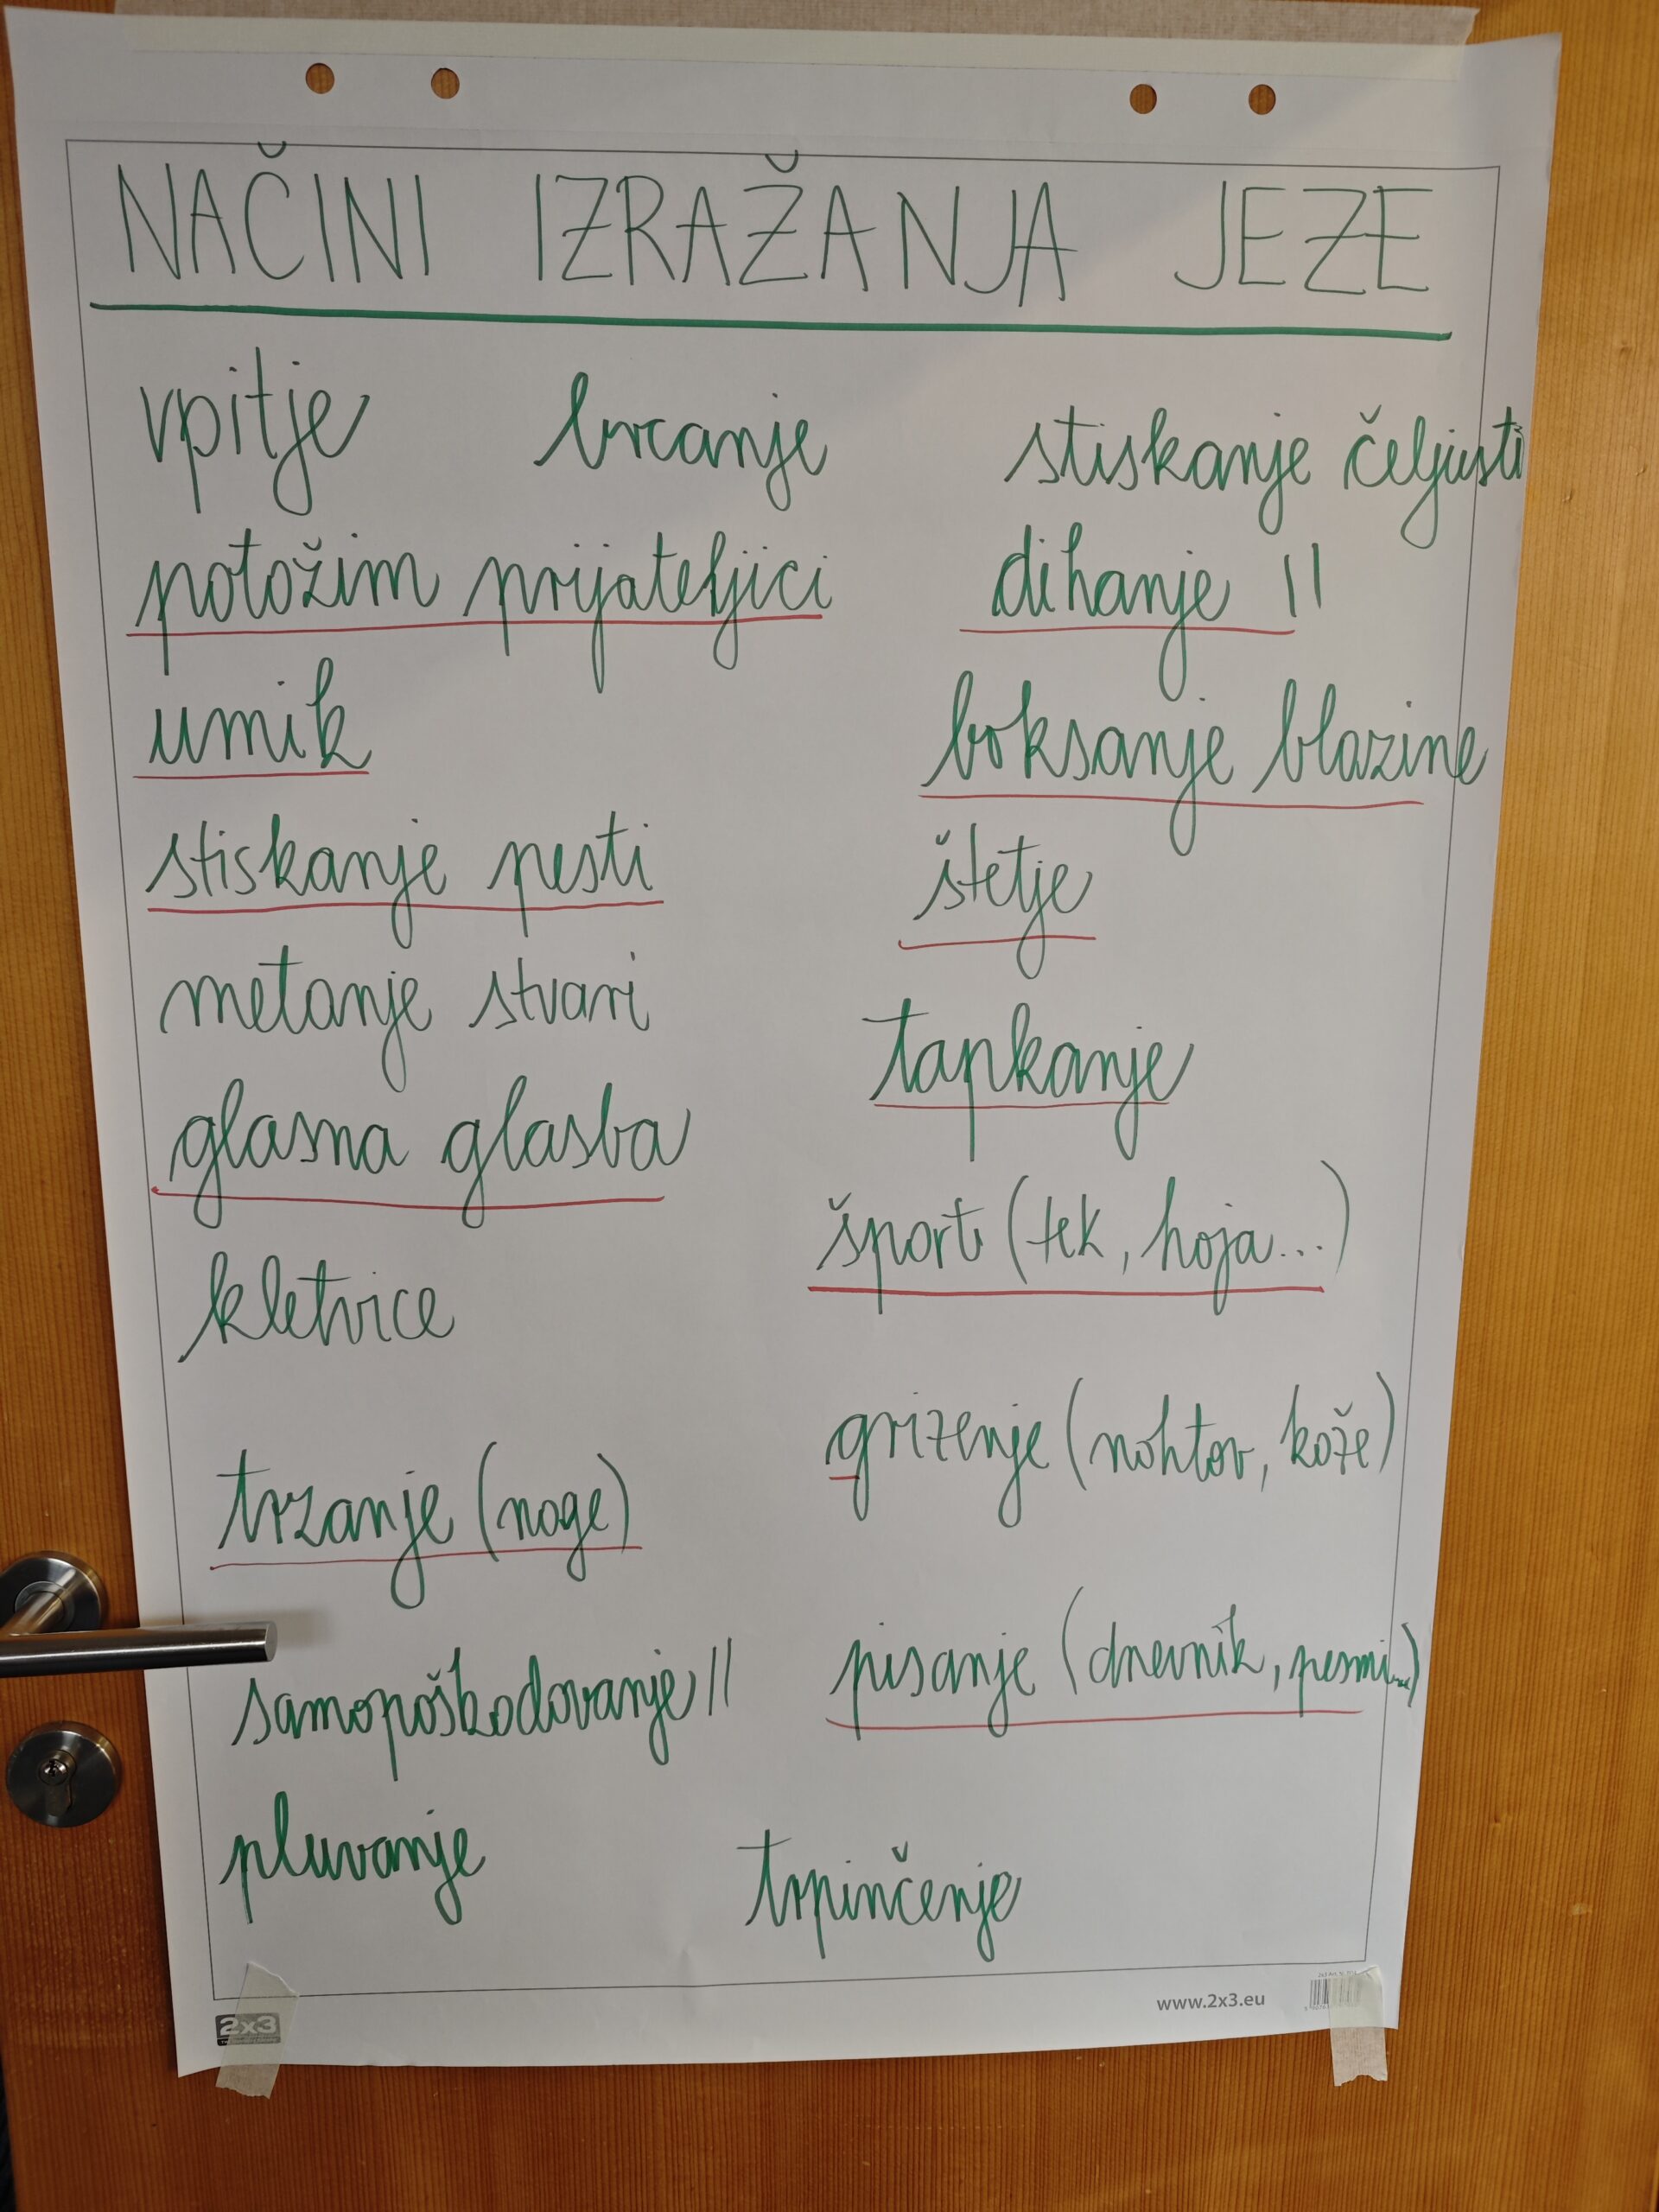 NAČINI IZRAŽANJA JEZE
vpitje
brcanje
stiskanje čeljusti
potožim prijateljici
dihanje ||
umik
boksanje blazine
stiskanje pesti
štetje
metanje stvari
tapkanje
glasna glasba
šport (tek, hoja...)
kletvice
grizenje (nohtov, kože)
trzanje (noge)
samopoškodovanje ||
pisanje (dnevnik, pesmi...)
pluvanje
trpinčenje
2x3
www.2x3.eu